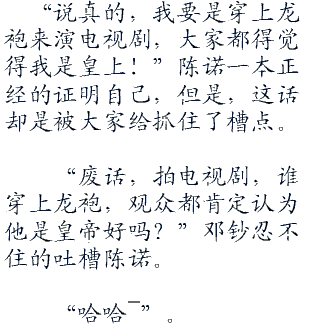 “说真的，我要是穿上龙
袍来演电视剧，大家都得觉
得我是皇上！”陈诺一本正
经的证明自己，但是，这话
却是被大家给抓住了槽点。
“废话，拍电视剧，谁
穿上龙袍，观众都肯定认为
他是皇帝好吗？”邓钞忍不
住的吐槽陈诺。
“哈哈¯”。